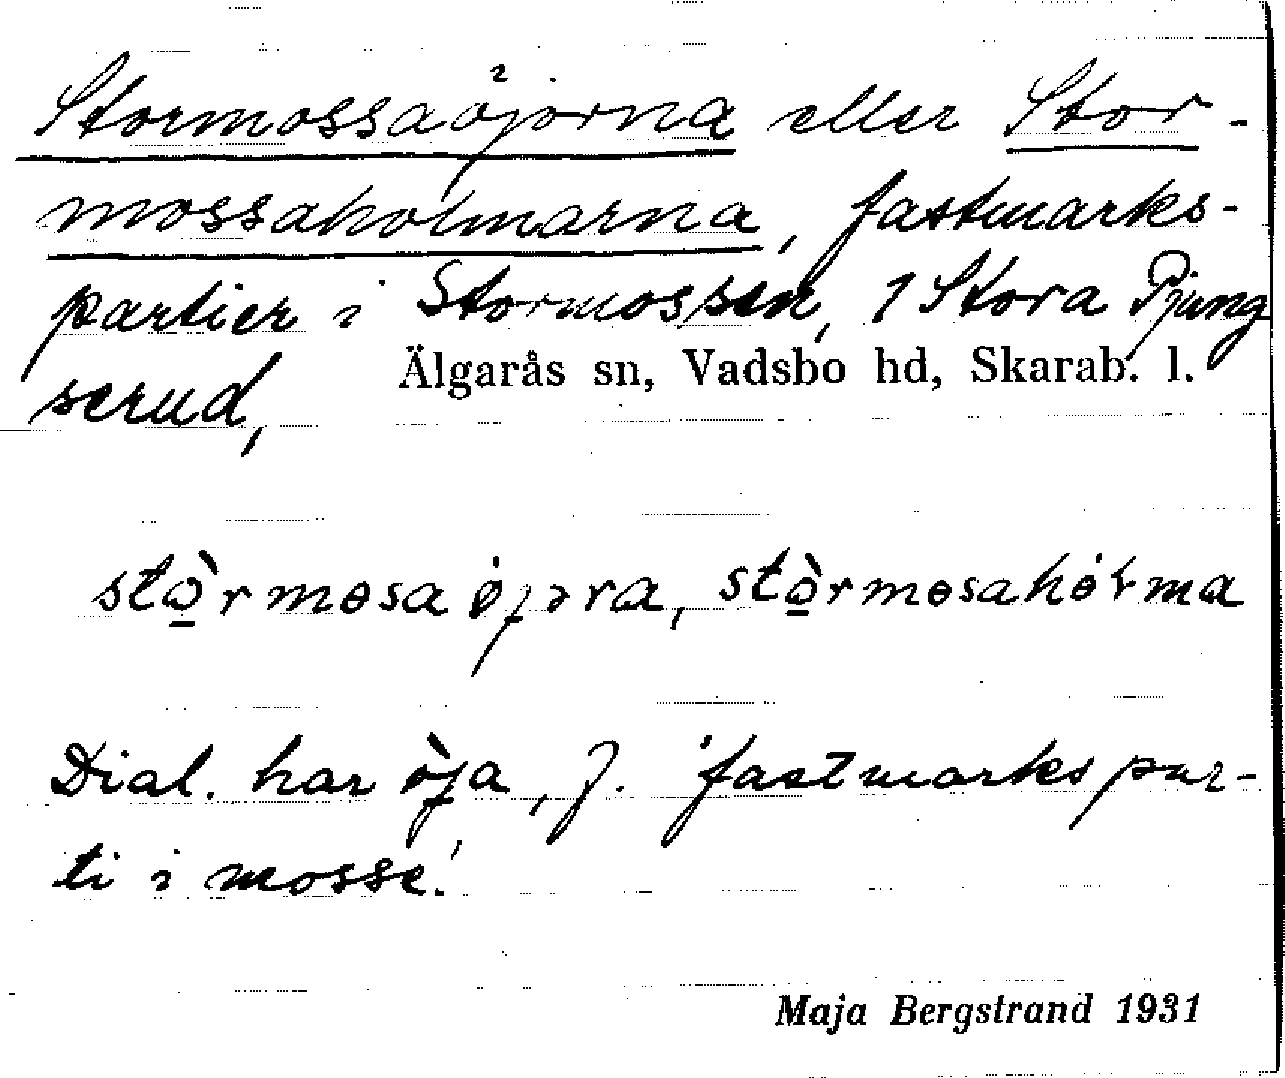 Stormossaöjorna eller Stor-
mossaholmarna, fastmarks-
partier i Stormossen, 1 Stora Pjung
serud, Älgarås sn, Vadsbo hd, Skarab. l.
stò̠rmosa öjɔra, stò̠rmosahólma
Dial. har öja, f. 'fastmarkspar-
ti i mosse.'
Maja Bergstrand 1931